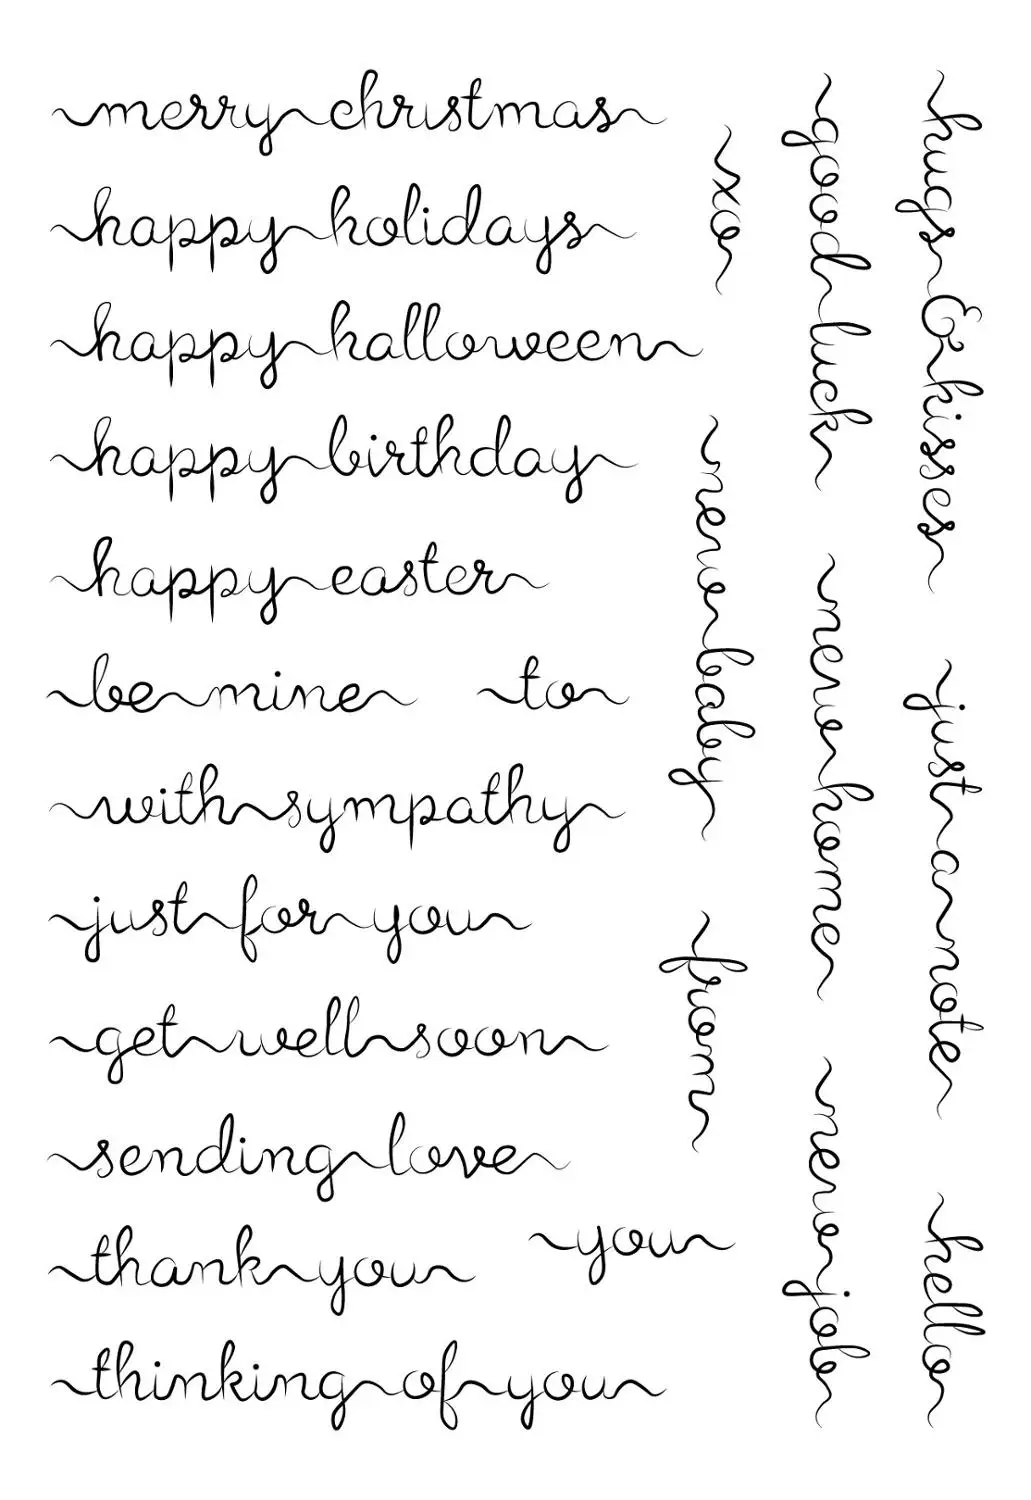 merry christmas
happy holidays
happy halloween
happy birthday
happy easter
be mine
to
with sympathy
just for you
get well soon
sending love
thank you
you
thinking of you
xo
new baby
from
good luck
new home
new job
hugs & kisses
just a note
hello